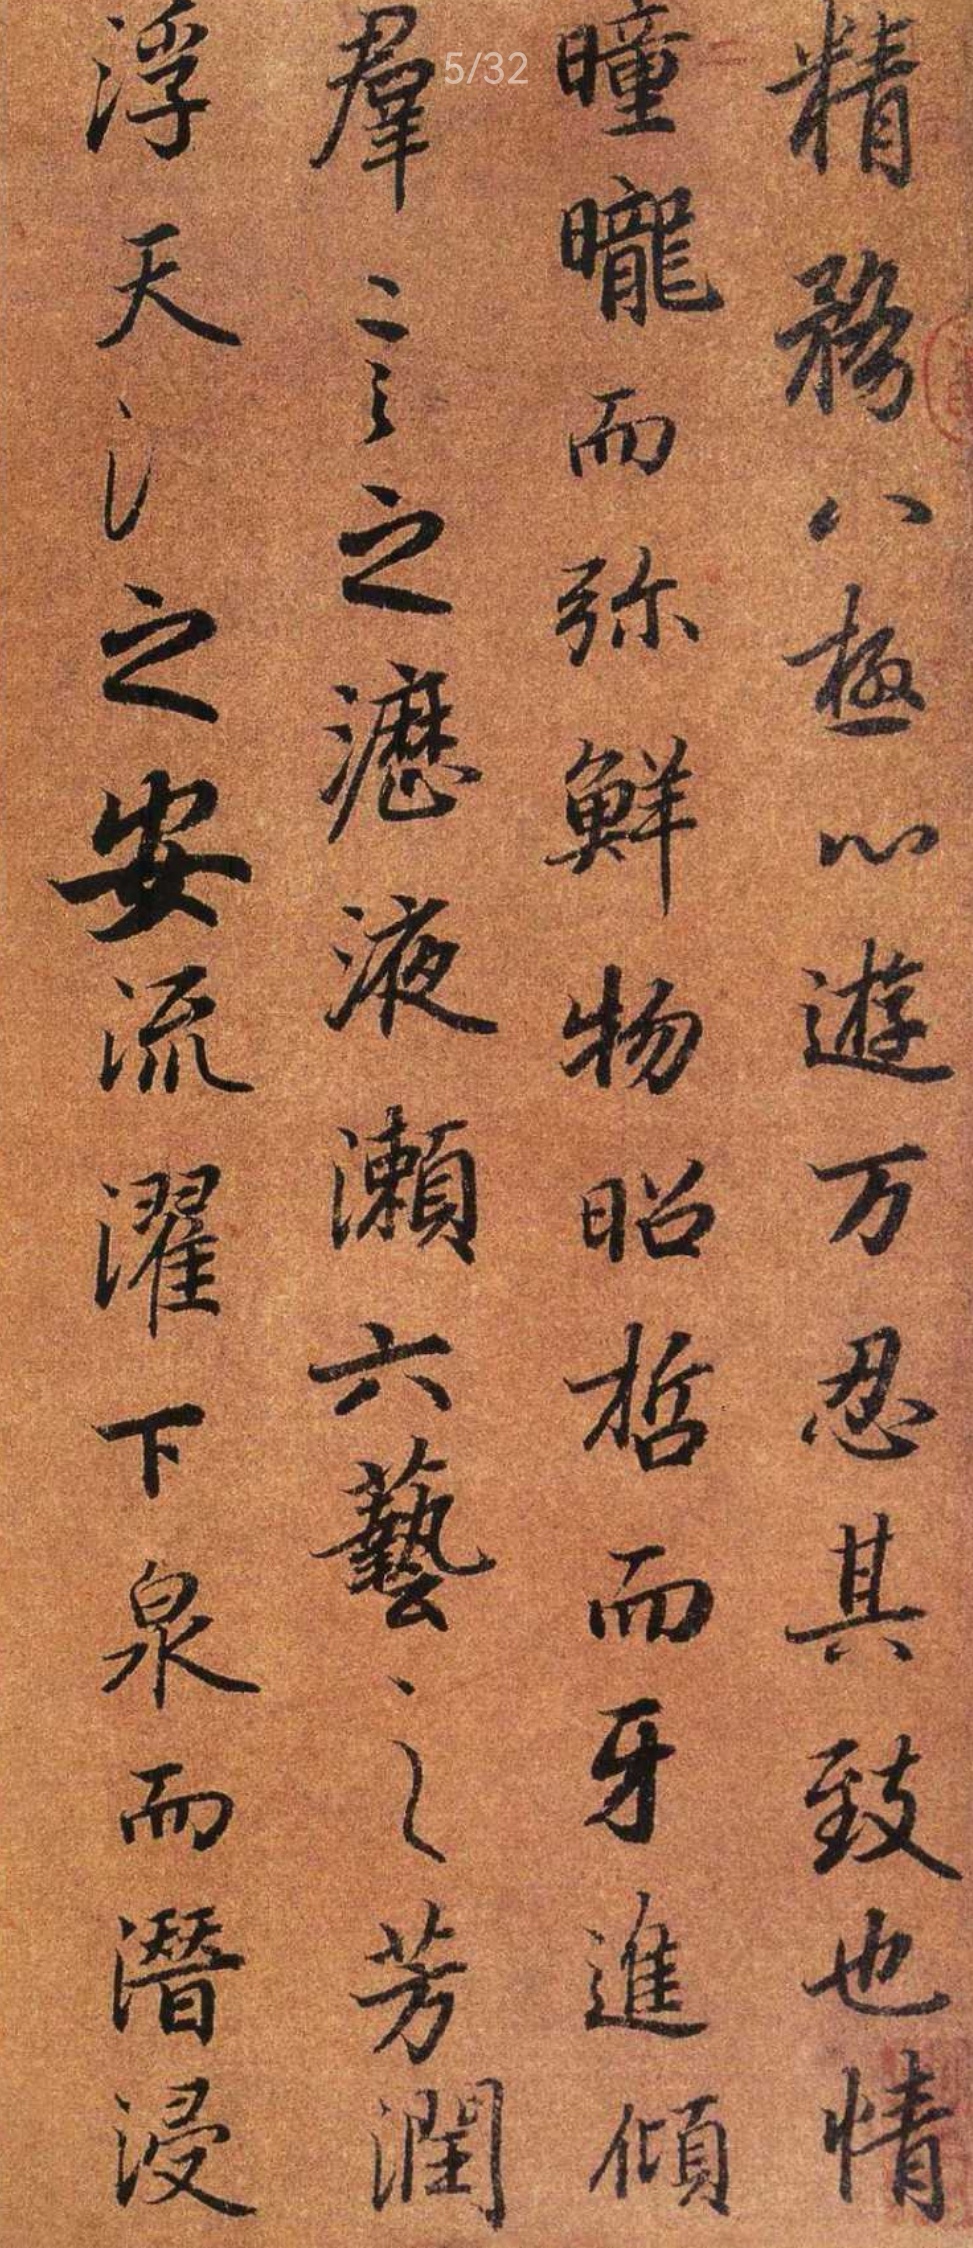 5/32
精務八極心遊万忍其致也情
曈曨而弥鮮物昭晢而牙進傾
羣言之瀝液瀨六藝之芳潤
浮天之安流濯下泉而潛浸